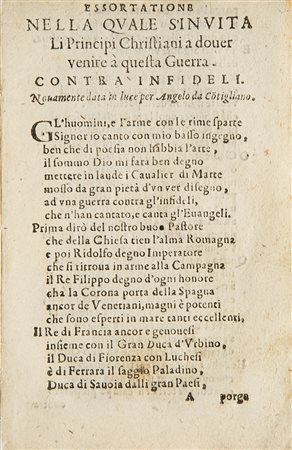 ESSORTATIONE
NELLA QVALE S'INVITA
Li Principi Christiani a douer
venire à questa Guerra
CONTRA INFIDELI.
Nouamente data in luce per Angelo da Cōtigliano.
GL'huomini, e l'arme con le rime sparte
Signor io canto con mio basso ingegno,
ben che di poesia non habbia l'arte,
il sommo Dio mi fara ben degno
mettere in laude i Caualier di Marte
mosso da gran pietà d'vn ver disegno,
ad vna guerra contra gl'infideli,
che n'han cantato, e canta gl'Euangeli.
Prima dirò del nostro buo Pastore
che della Chiesa tien l'alma Romagna
e poi Ridolfo degno Imperatore
che si ritroua in arme alla Campagna
il Re Filippo degno d'ogni honore
cha la Corona porta della Spagna
ancor de Venetiani, magni è potenti
che sono esperti in mare tanti eccellenti,
Il Re di Francia ancor e genouesi
insieme con il Gran Duca d'Vrbino,
il Duca di Fiorenza con Luchesi
è di Ferrara il saggio Paladino,
Duca di Sauoia dalli gran Paesi,
A porge